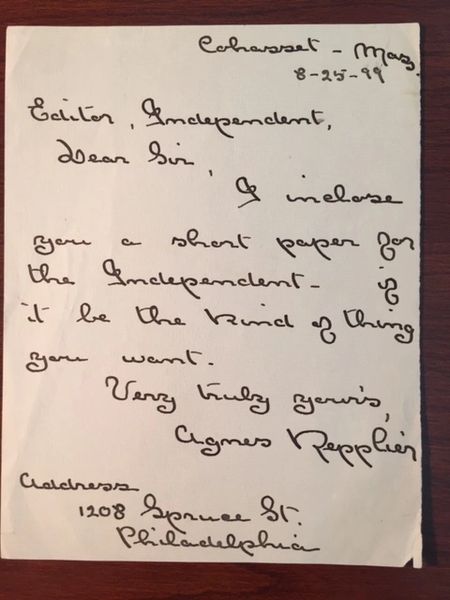 Cohasset - Mass.
8-25-99
Editor, Independent,
Dear Sir,
I inclose
you a short paper for
the Independent - if
it be the kind of thing
you want.
Very truly yours,
Agnes Repplier
Address
1208 Spruce St.
Philadelphia